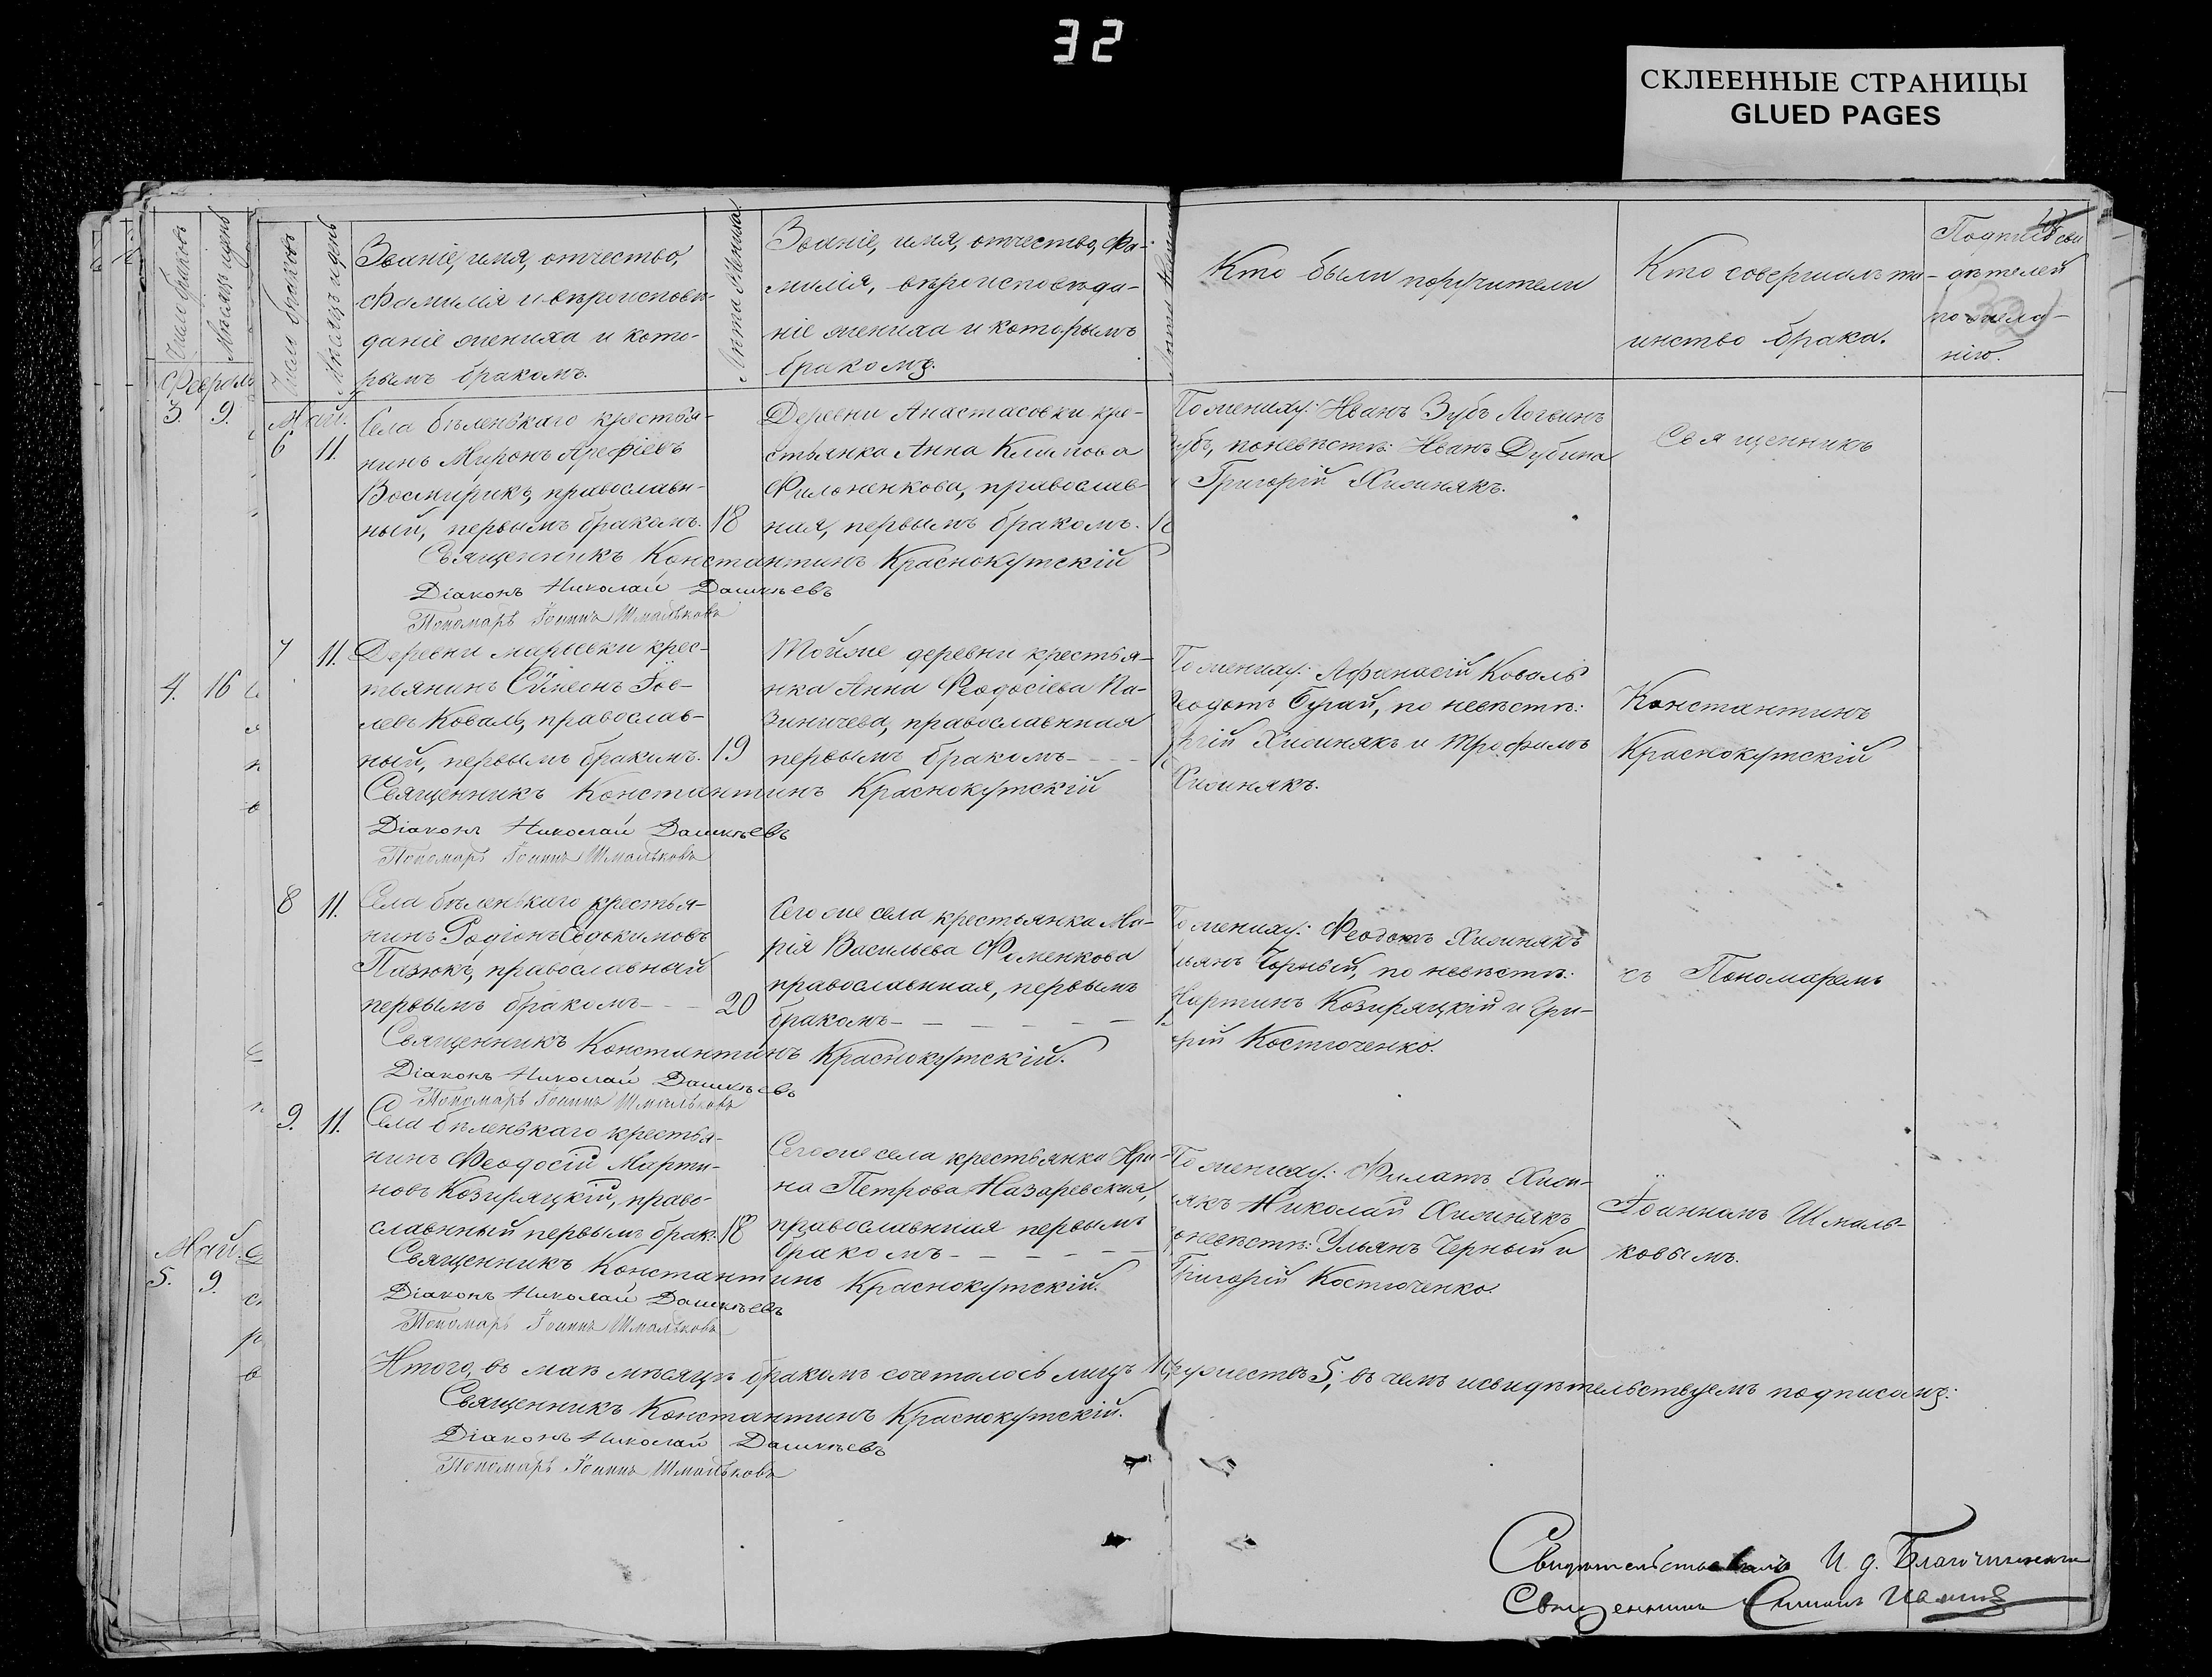 32
СКЛЕЕННЫЕ СТРАНИЦЫ
GLUED PAGES
Число браковъ
Мѣсяцъ и день
Февраль
3. 9.
4. 16
Май.
5. 9.
Число браковъ
Мѣсяцъ и день
Званіе, имя, отчество,
фамилія и вѣроисповѣ-
даніе жениха и кото-
рымъ бракомъ.
Лѣта жениха
Званіе, имя, отчество, фа-
милія, вѣроисповѣда-
ніе жениха и которымъ
бракомъ.
Кто были поручители
Кто совершалъ та-
инство брака.
Подписъ сви
дѣтелей
по жела-
нію.
Май.
6 11.
Села бѣленькаго крестья-
нинъ Миронъ Арефіевъ
Восмирикъ, православ-
ный, первымъ бракомъ. 18
Деревни Анастасовки кре-
стьянка Анна Климова
Филоненкова, православ-
ная, первымъ бракомъ.
По жениху: Иванъ Зубъ Логвинъ
Зубъ, по невѣстѣ: Иванъ Дубина
и Григорій Хижнякъ.
Священникъ
Священникъ Константинъ Краснокутскій
Діаконъ Николай Дашкѣевъ
Пономарь Іоаннъ Шмальковъ
7 11.
Деревни марьевки крес-
тьянинъ Симеонъ Іов-
левъ Коваль, православ-
ный, первымъ бракомъ. 19
Тойже деревни крестья-
нка Анна Феодосіева Па-
зиничева, православная
первымъ бракомъ
По жениху: Афанасій Коваль
Феодотъ Бугай, по невѣстѣ:
Хижнякъ и Трофимъ
Хижнякъ.
Константинъ
Краснокутскій
Священникъ Константинъ Краснокутскій
Діаконъ Николай Дашкѣевъ
Пономарь Іоаннъ Шмальковъ
8 11.
Села бѣленькаго крестья-
нинъ Родіонъ Евдокимовъ
Пазюкъ, православный
первымъ бракомъ - - 20
Сего же села крестьянка Ма-
рія Васильева Фоменкова
православная, первымъ
бракомъ - - - - -
По жениху: Феодотъ Хижнякъ
Ульянъ Чорный, по невѣстѣ:
Мартинъ Козиряцкій и Гри-
горій Костюченко.
съ Пономаремъ
Священникъ Константинъ Краснокутскій.
Діаконъ Николай Дашкѣевъ
Пономарь Іоаннъ Шмальковъ
9. 11.
Села бѣленькаго крестья-
нинъ Феодосій Марти-
новъ Козиряцкій, право-
славный первымъ брак. 18
Сего же села крестьянка Ири-
на Петрова Назаревская,
православная первымъ
бракомъ - - - -
По жениху: Филатъ Хиж-
някъ Николай Хижнякъ
по невѣстѣ: Ульянъ Черный и
Григорій Костюченко.
Іоанномъ Шмаль-
ковымъ.
Священникъ Константинъ Краснокутскій.
Діаконъ Николай Дашкѣевъ
Пономарь Іоаннъ Шмальковъ
Итого, въ маѣ мѣсяцѣ бракомъ сочеталось лицъ 10, супружествъ 5, въ чемъ и свидѣтельствуемъ подписомъ:
Священникъ Константинъ Краснокутскій.
Діаконъ Николай Дашкѣевъ
Пономарь Іоаннъ Шмальковъ
Свидѣтельствовалъ И. д. Благочиннаго
Священникъ